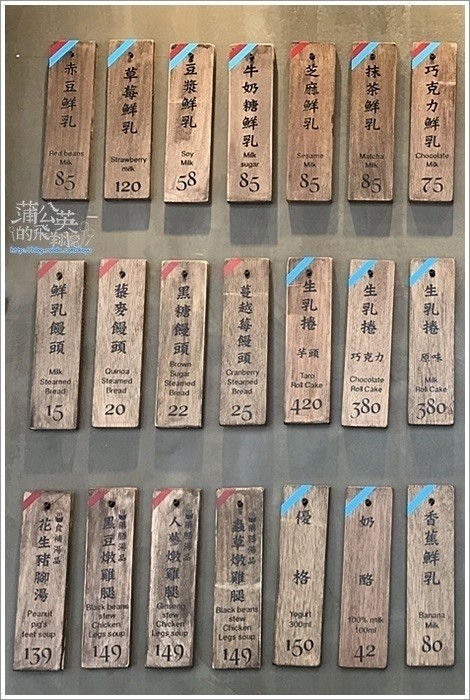 赤豆鮮乳
Red beans
Milk
85
草莓鮮乳
Strawberry
milk
120
豆漿鮮乳
Soy
Milk
58
牛奶糖鮮乳
Milk
sugar
85
芝麻鮮乳
Sesame
Milk
85
抹茶鮮乳
Matcha
Milk
85
巧克力鮮乳
Chocolate
Milk
75
蒲公英
的飛翔說
鮮乳饅頭
Milk
Steamed
Bread
15
藜麥饅頭
Quinoa
Steamed
Bread
20
黑糖饅頭
Brown
Sugar
Steamed
Bread
22
蔓越莓饅頭
Cranberry
Steamed
Bread
25
生乳捲
芋頭
Taro
Roll Cake
420
生乳捲
巧克力
Chocolate
Roll Cake
380
生乳捲
原味
Milk
Roll Cake
380
食補湯品
花生豬腳湯
Peanut
pig's
feet soup
139
膳湯品
黑豆燉雞腿
Black beans
stew
Chicken
Legs soup
149
膳湯品
人蔘燉雞腿
Ginseng
stew
Chicken
Legs soup
149
膳湯品
蟲草燉雞腿
Black beans
stew
Chicken
Legs soup
149
優格
Yogurt
300ml
150
奶酪
100% milk
100ml
42
香蕉鮮乳
Banana
Milk
80